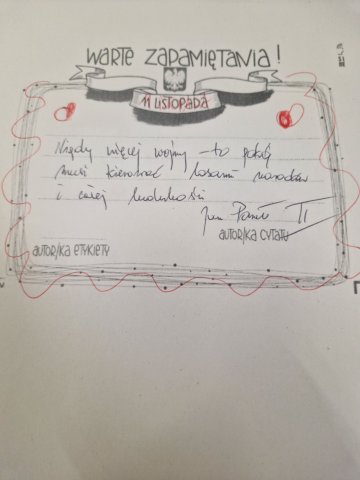 WARTE ZAPAMIĘTANIA!
11 LISTOPADA
Nigdy więcej wojny - to pokój
musi kierować losami narodów
i całej ludzkości
Jan Paweł II
AUTOR/KA CYTATU
AUTOR/KA ETYKIETY